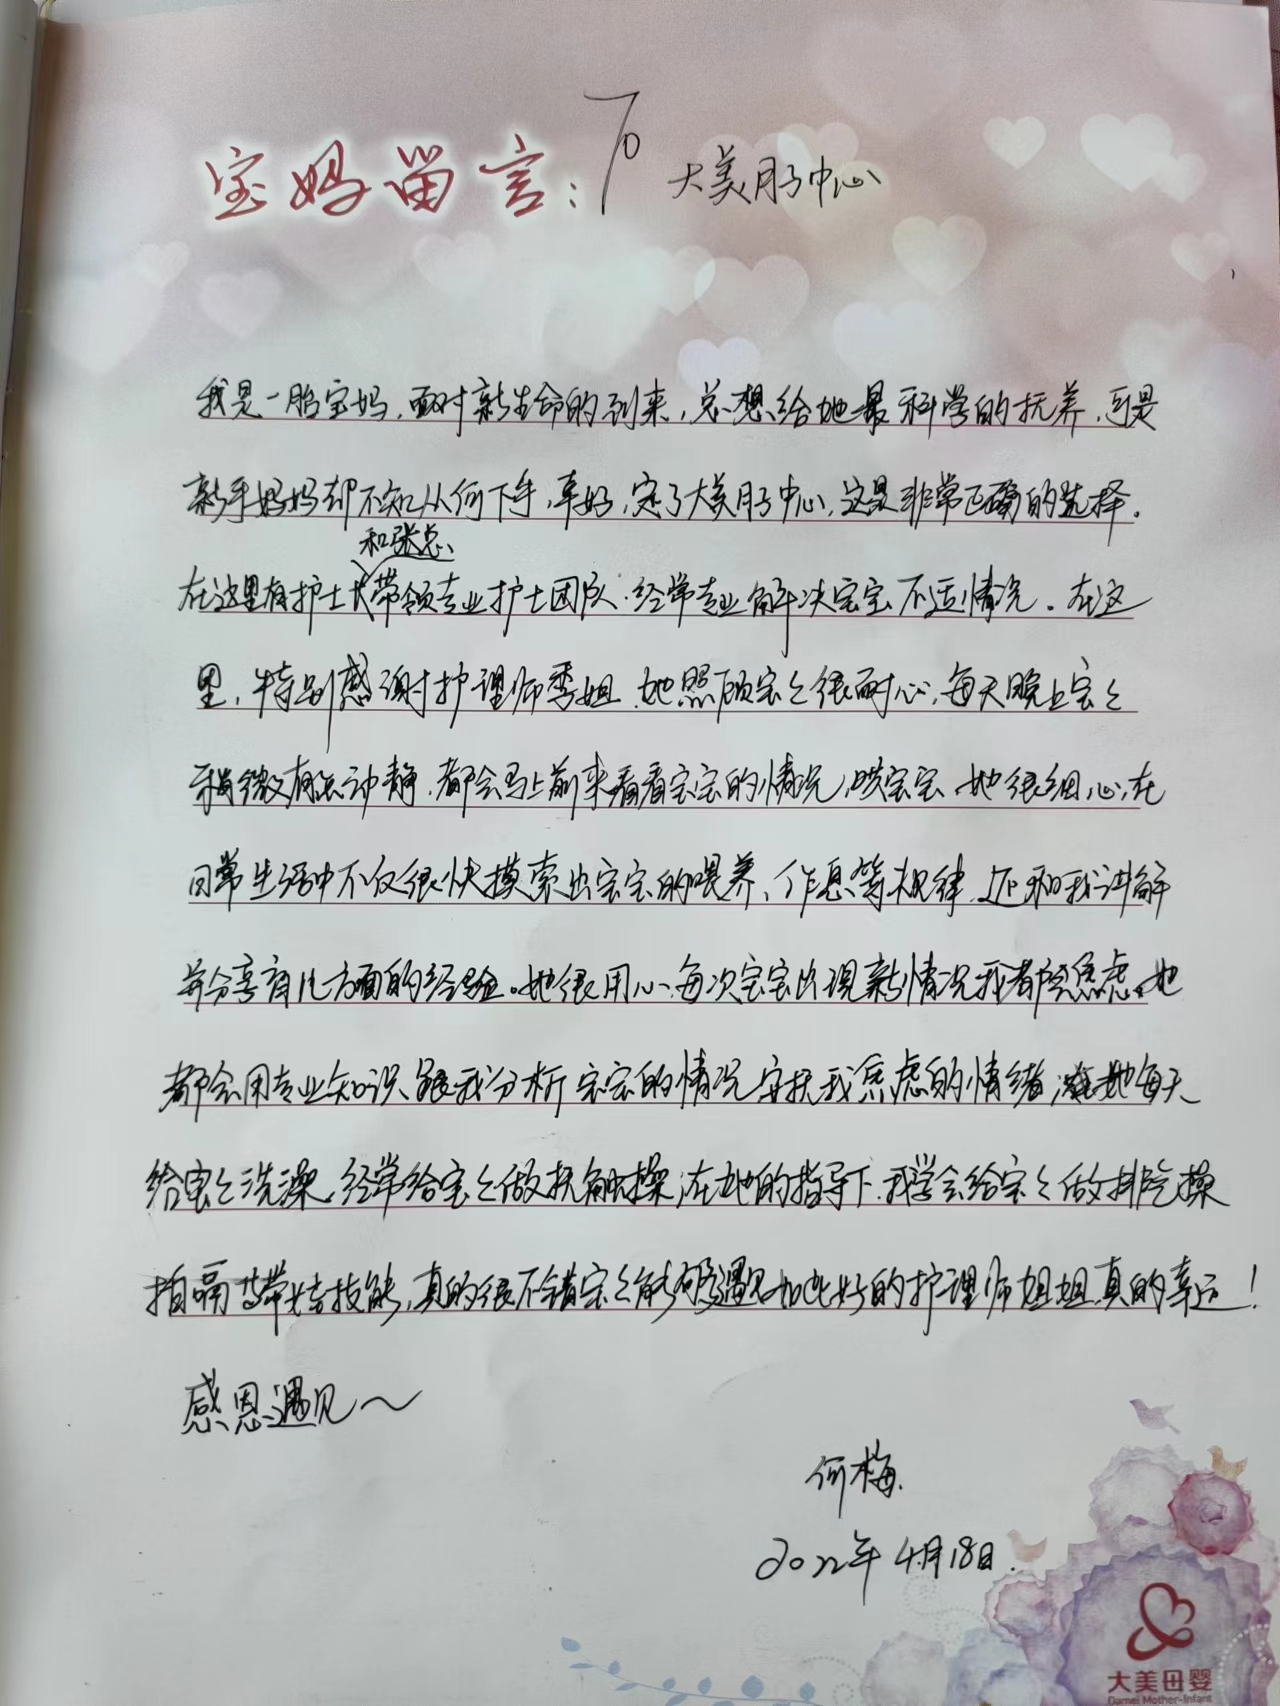 宝妈留言: To 大美月子中心
我是一胎宝妈,面对新生命的到来,总想给她最科学的抚养,可是
新手妈妈却不知从何下手,幸好,定了大美月子中心,这是非常正确的选择。
和张总
在这里有护士长带领专业护士团队,经常专业解决宝宝不适情况。在这
里,特别感谢护理师季姐,她照顾宝宝很耐心,每天晚上宝宝
稍微有点动静,都会马上前来看看宝宝的情况,哄宝宝,她很细心,在
日常生活中不仅很快摸索出宝宝的喂养、作息等规律,还和我讲解
并分享育儿方面的经验。她很用心,每次宝宝出现新情况我都会焦虑,她
都会用专业知识跟我分析宝宝的情况,安抚我焦虑的情绪,她每天
给宝宝洗澡,经常给宝宝做抚触操,在她的指导下,我学会给宝宝做排气操
拍嗝等技能,真的很不错宝宝能够遇见如此好的护理师姐姐,真的幸运!
感恩遇见~
何梅.
2022年4月18日.
大美母婴
Damei Mother-Infant